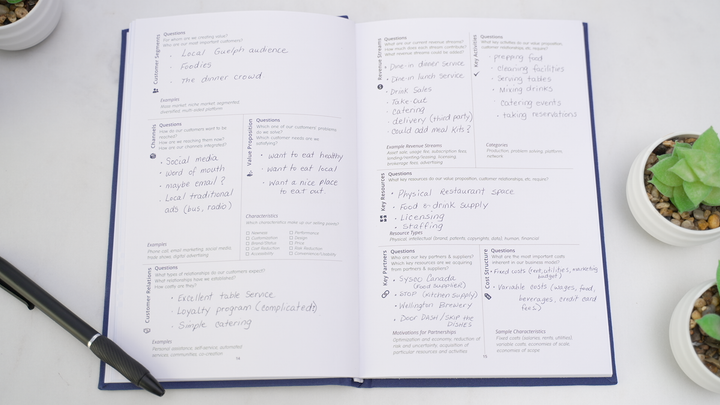 Customer Segments
Questions
For whom are we creating value?
Who are our most important customers?
• Local Guelph audience
• Foodies
• The dinner crowd
Examples
Mass market, niche market, segmented,
diversified, multi-sided platform
Channels
Questions
How do our customers want to be
reached?
How are we reaching them now?
How are our channels integrated?
• Social media
• word of mouth
• maybe email?
• Local traditional
ads (bus, radio)
Examples
Phone call, email marketing, social media,
trade shows, digital advertising
Value Proposition
Questions
Which one of our customers' problems
do we solve?
Which customer needs are we
satisfying?
• want to eat healthy
• want to eat local
• Want a nice place
to eat out.
Characteristics
Which characteristics make up our selling points?
Newness
Performance
Customization
Design
Brand/Status
Price
Cost Reduction
Risk Reduction
Accessibility
Convenience/Usability
Customer Relations
Questions
What types of relationships do our customers expect?
What relationships have we established?
How costly are they?
• Excellent table Service
• Loyalty program (complicated?)
• Simple catering
Examples
Personal assistance, self-service, automated
services, communities, co-creation
Revenue Streams
Questions
What are our current revenue streams?
How much does each stream contribute?
What revenue streams could be added?
• Dine-in dinner service
• Dine-in lunch service
• Drink Sales
• Take-out
• catering
• delivery (third party)
• Could add meal kits?
Example Revenue Streams
Asset sale, usage fee, subscription fees,
lending/renting/leasing, licensing,
brokerage fees, advertising
Key Activities
Questions
What key activities do our value proposition,
customer relationships, etc. require?
• prepping food
• cleaning facilities
• Serving tables
• Mixing drinks
• catering events
• taking reservations
Categories
Production, problem solving, platform,
network
Key Resources
Questions
What key resources do our value proposition, customer relationships, etc. require?
• Physical Restaurant space
• Food & drink supply
• Licensing
• Staffing
Resource Types
Physical, intellectual (brand, patents, copyrights, data), human, financial
Key Partners
Questions
Who are our key partners & suppliers?
Which key resources are we acquiring
from partners & suppliers?
• Sysco Canada
(Food supplies)
• STOP (kitchen supply)
• Wellington Brewery
• Door Dash / Skip the
Dishes
Motivations for Partnerships
Optimization and economy, reduction of
risk and uncertainty, acquisition of
particular resources and activities
Cost Structure
Questions
What are the most important costs
inherent in our business model?
• Fixed costs (rent, utilities, marketing
budget)
• Variable costs (wages, food,
beverages, credit card
fees)
Sample Characteristics
Fixed costs (salaries, rents, utilities)
variable costs, economies of scale,
economies of scope